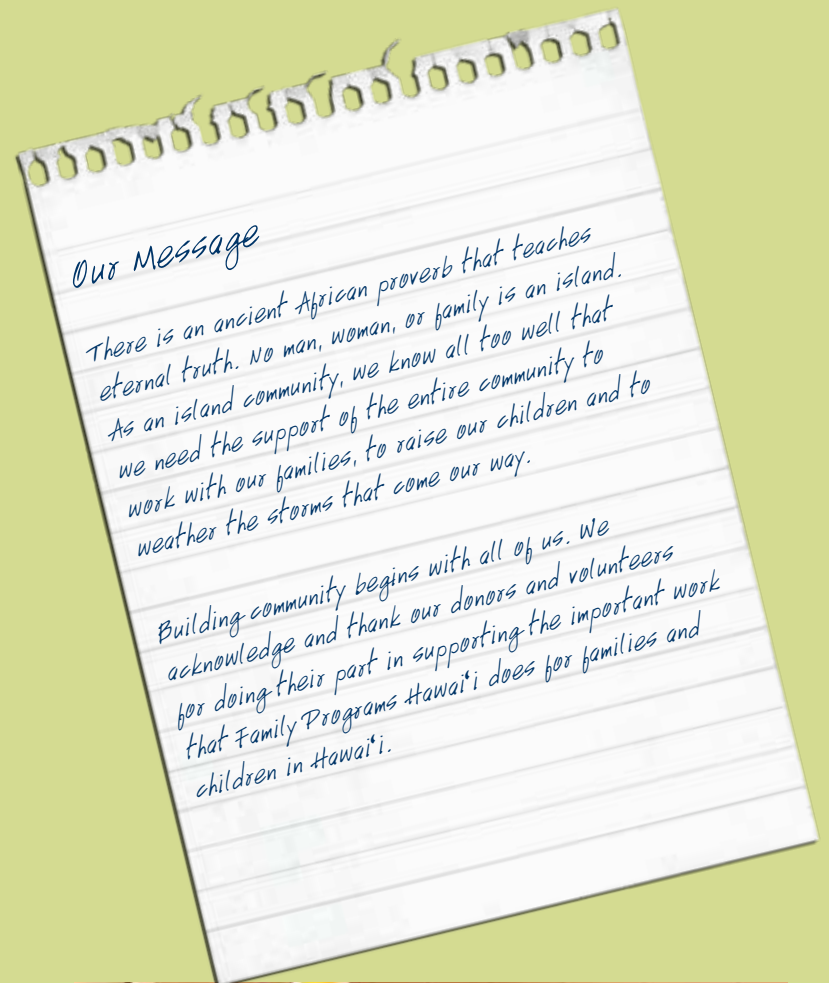 Our Message
There is an ancient African proverb that teaches
eternal truth. No man, woman, or family is an island.
As an island community, we know all too well that
we need the support of the entire community to
work with our families, to raise our children and to
weather the storms that come our way.
Building community begins with all of us. We
acknowledge and thank our donors and volunteers
for doing their part in supporting the important work
that Family Programs Hawaiʻi does for families and
children in Hawaiʻi.